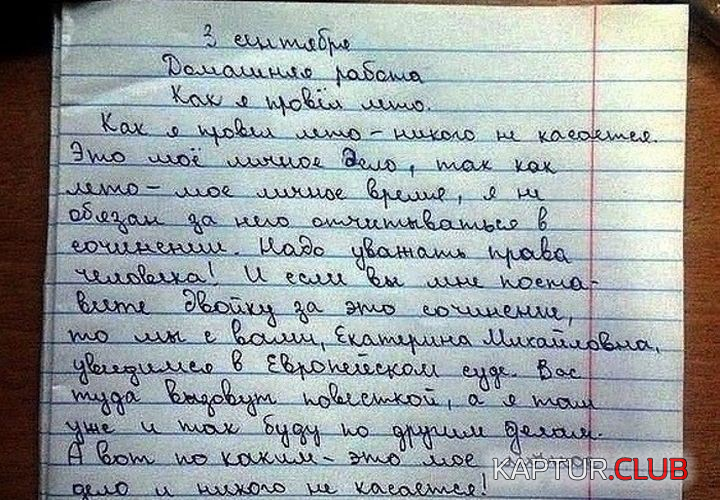 3 сентября
Домашняя работа
Как я провёл лето.
Как я провел лето – никого не касается.
Это моё личное дело, так как
лето – мое личное время, я не
обязан за него отчитываться в
сочинении. Надо уважать права
человека! И если вы мне поста-
вите двойку за это сочинение,
то мы с вами, Екатерина Михайловна,
увидимся в Европейском суде. Вас
туда вызовут повесткой, а я там
уже и так буду по другим делам.
А вот по каким – это мое
дело и никого не касается!
KAPTUR.CLUB